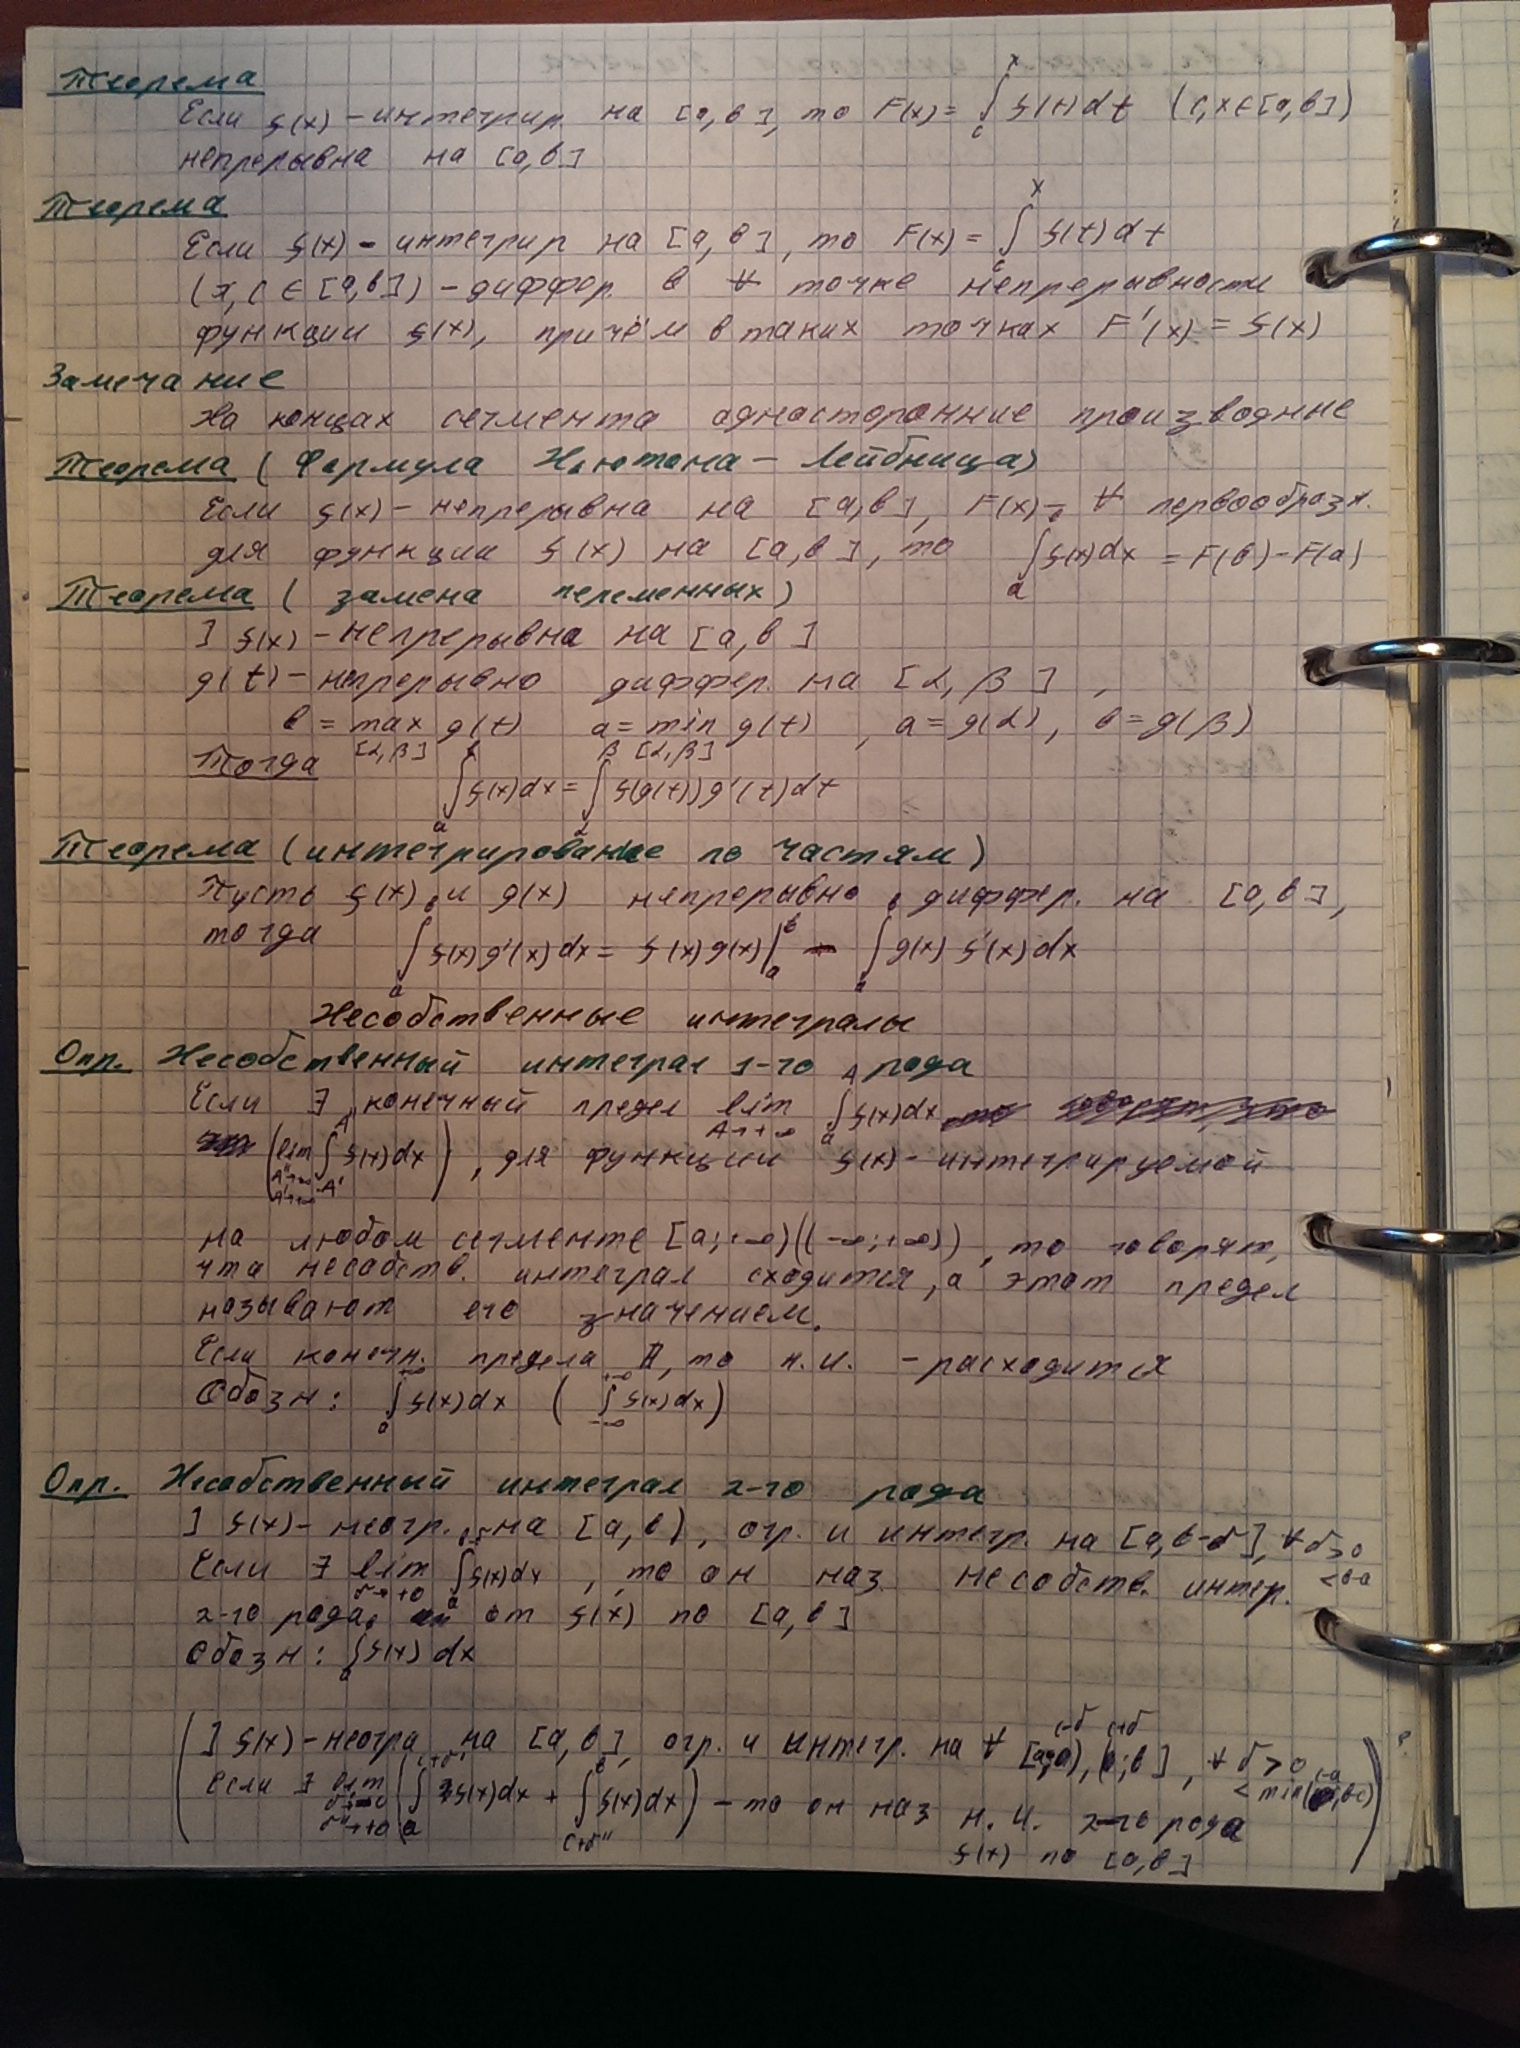 Теорема
Если f(x) – интегрир. на [a,b], то F(x) = ∫_c^x f(t)dt (c,x∈[a,b])
непрерывна на [a,b]
Теорема
Если f(x) – интегрир на [a,b], то F(x) = ∫_c^x f(t)dt
(x,c ∈ [a,b]) – диффер. в ∀ точке непрерывности
функции f(x), причём в таких точках F'(x) = f(x)
Замечание
На концах сегмента односторонние производные
Теорема (Формула Ньютона – Лейбница)
Если f(x) – непрерывна на [a,b], F(x) – ∀ первообразн.
для функции f(x) на [a,b], то ∫_a^b f(x)dx = F(b) – F(a)
Теорема (замена переменных)
] f(x) – непрерывна на [a,b]
g(t) – непрерывно диффер. на [α, β],
b = max g(t) [α,β] a = min g(t) [α,β], a = g(α), b = g(β)
Тогда ∫_a^b f(x)dx = ∫_α^β f(g(t))g'(t)dt
Теорема (интегрирование по частям)
Пусть f(x) и g(x) непрерывно диффер. на [a,b],
тогда ∫_a^b f(x)g'(x)dx = f(x)g(x)|_a^b – ∫_a^b g(x)f'(x)dx
Несобственные интегралы
Опр. Несобственный интеграл 1-го рода
Если ∃ конечный предел lim_{A→+∞} ∫_a^A f(x)dx
(lim_{A''→∞ A'→∞} ∫_{-A'}^{A''} f(x)dx), для функции f(x) – интегрируемой
на любом сегменте [a;+∞)((-∞;+∞)), то говорят,
что несобств. интеграл сходится, а этот предел
называют его значением.
Если конечн. предела ∄, то н.и. – расходится
Обозн: ∫_a^{+∞} f(x)dx (∫_{-∞}^{+∞} f(x)dx)
Опр. Несобственный интеграл 2-го рода
] f(x) – неогр. на [a,b), огр. и интегр. на [a,b-δ], ∀ δ>0 <b-a
Если ∃ lim_{δ→+0} ∫_a^{b-δ} f(x)dx, то он наз. несобств. интегр.
2-го рода от f(x) по [a,b]
Обозн: ∫_a^b f(x)dx
(] f(x) – неогр на [a,b], огр. и интегр. на ∀ [a; c-δ), (c+δ; b], ∀ δ>0 <min(c-a, b-c)
если ∃ lim_{δ'→+0 δ''→+0} (∫_a^{c+δ'} f(x)dx + ∫_{c+δ''}^b f(x)dx) – то он наз н.и. 2-го рода
f(x) по [a,b])